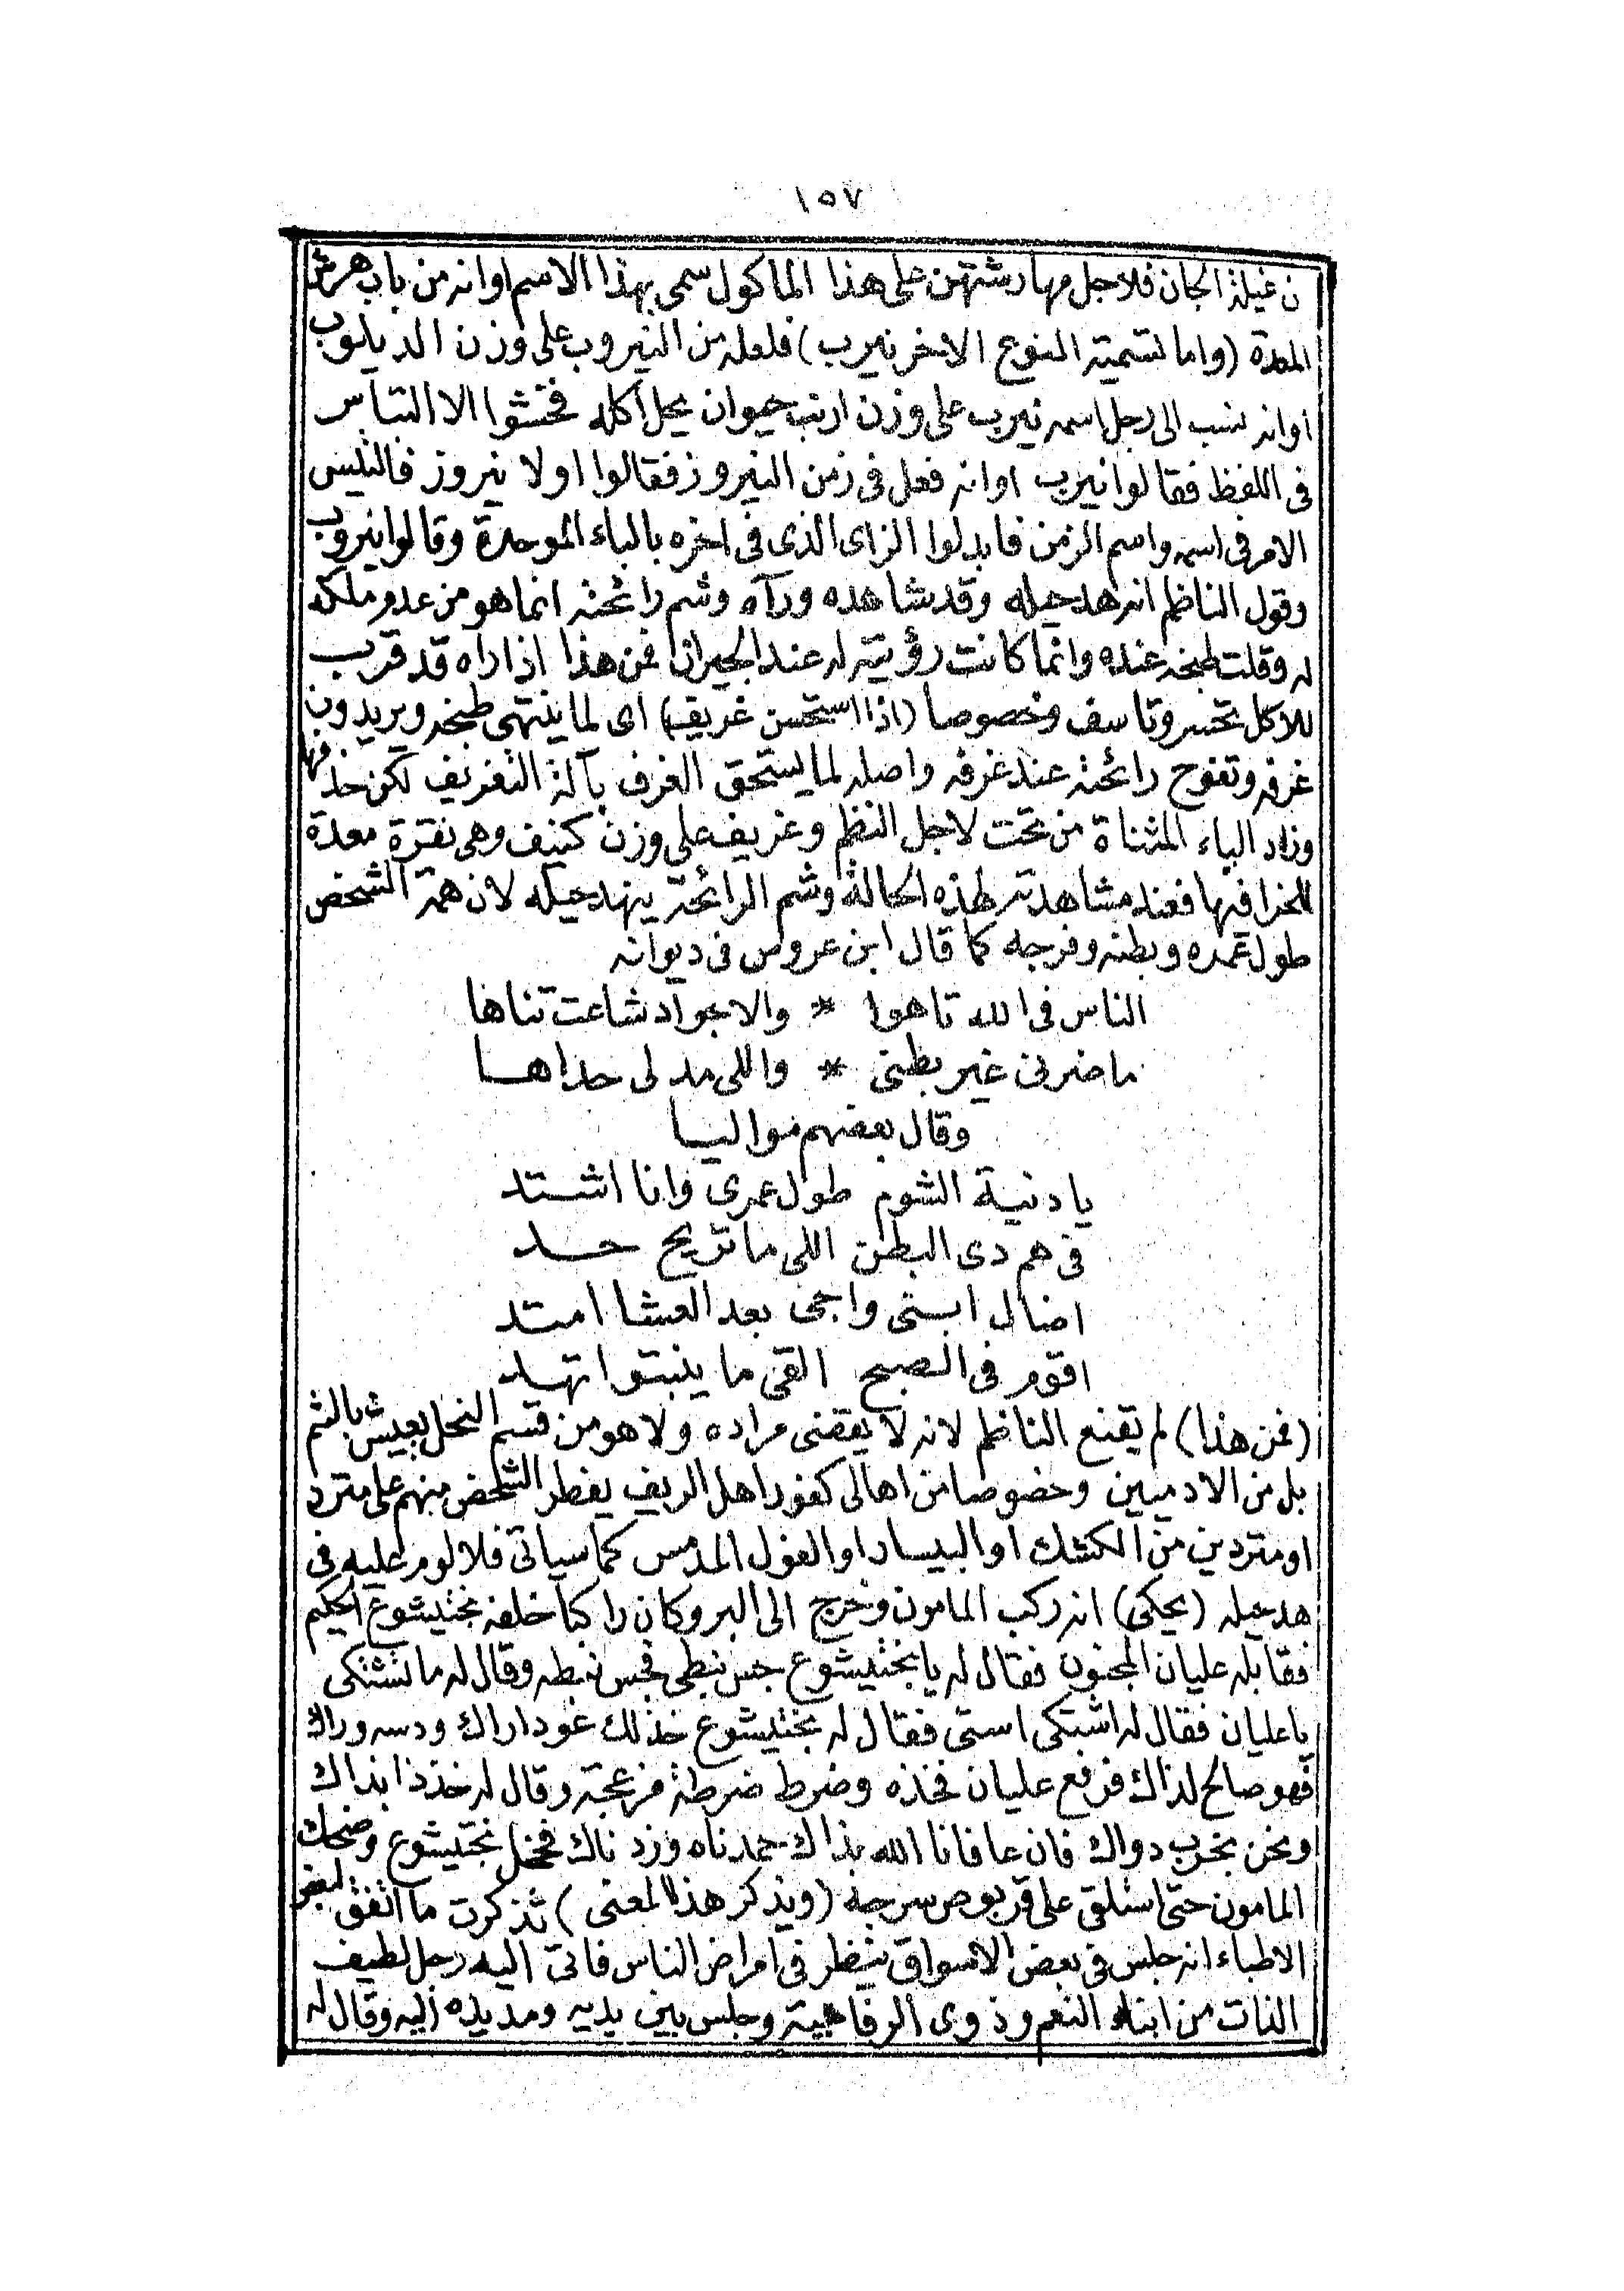 ١٥٧
ن غيلة الجان فلاجل مهارشتهن على هذا المأكول سمى بهذا الاسم اوانه من باب هرش
المعدة (واما تسمية النوع الاخر نيرب) فلعله من النيروب على وزن الديلوب
اوانه نسب الى رجل اسمه نيرب على وزن ارنب حيوان يحل اكله فخشوا الالتباس
فى اللفظ فقالوا نيرب اوانه فعل فى زمن النيروز فقالوا اولا نيروز فالتبس
الامر فى اسمه واسم الزمن فابدلوا الزاى الذى فى اخره بالباء الموحدة وقالوا نيروب
وقول الناظم انه هد حيله وقد شاهده ورآه وشم رائحته انما هو من عدم ملكه
له وقلت طبخه عنده وانما كانت رؤيته له عند الجيران فمن هذا اذا راه قد قرب
للاكل تحسر وتاسف وخصوصا (اذا استحسن غريف) اى لما ينتهى طبخه ويريدون
غرفه وتفوح رائحته عند غرفه واصله لما يستحق الغرف بآلة التغريف لكن حذفها
وزاد الياء المثناة من تحت لاجل النظم وغريف على وزن كنيف وهى نقرة معدة
للخرا فيها فعند مشاهدته لهذه الحالة وشم الرائحة ينهد حيله لان همة الشخص
طول عمره وبطنه وفرجه كما قال ابن عروس فى ديوانه
الناس فى الله تاهوا * والاجواد شاعت تناها
ماضرنى غير بطنى * واللى مد لى حداها
وقال بعضهم مواليا
يا دنية الشوم طول عمرى وانا اشتد
فى هم دى البطن اللى ماتريح حد
اضال ابنى واجى بعد العشا امتد
اقوم فى الصبح القى ما ينبتوا تهد
(فمن هذا) لم يقنع الناظم لانه لا يقضى مراده ولا هو من قسم النحل يعيش بالشم
بل من الادميين وخصوصا من اهالى كفور اهل الريف يفطر الشخص منهم على مترد
او متردين من الكشك او البيسار او الفول المدمس كما سياتى فلا لوم عليه فى
هد حيله (يحكى) انه ركب المامون وخرج الى البر وكان راكبا خلفه بختيشوع الحكيم
فقابله عليان المجنون فقال له يا بختيشوع جس نبطى فجس نبطه وقال له ما تشتكى
يا عليان فقال له اشتكى استى فقال له بختيشوع خذ لك عود اراك ودسه وراك
فهو صالح لذاك فرفع عليان فخذه وضرط ضرطة مزعجة وقال له خذ ذا بذاك
ونحن نجرب دواك فان عافانا الله بذاك حمدناه وزدناك فخجل بختيشوع وضحك
المامون حتى استلقى على قربوص سرجه (ويذكر هذا المعنى) تذكرت ما اتفق لبعض
الاطباء انه جلس فى بعض الاسواق ينظر فى امراض الناس فاتى اليه رجل لطيف
الذات من ابناء النعم وذوى الرفاهية وجلس بين يديه ومد يده اليه وقال له